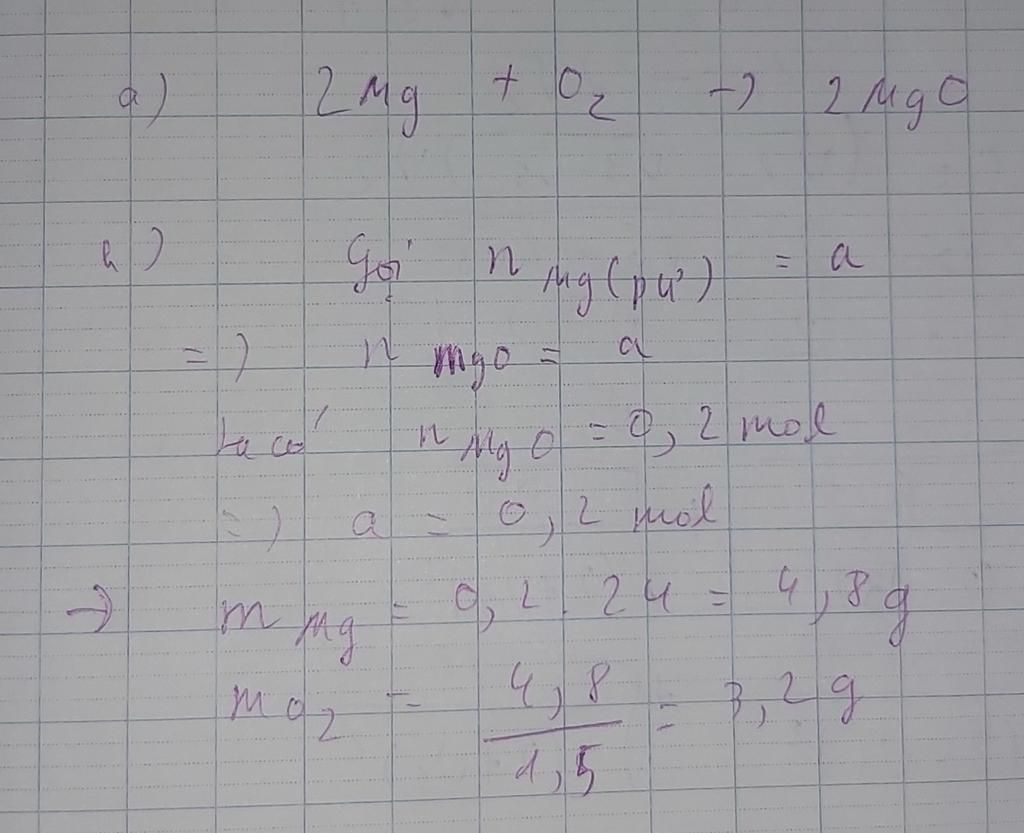 a) 2Mg + O2 → 2MgO
b) Gọi n Mg(pứ) = a
=) n MgO = a
ta có n MgO = 0,2 mol
=) a = 0,2 mol
→ m Mg = 0,2.24 = 4,8g
mO2 = 4,8/1,5 = 3,2g